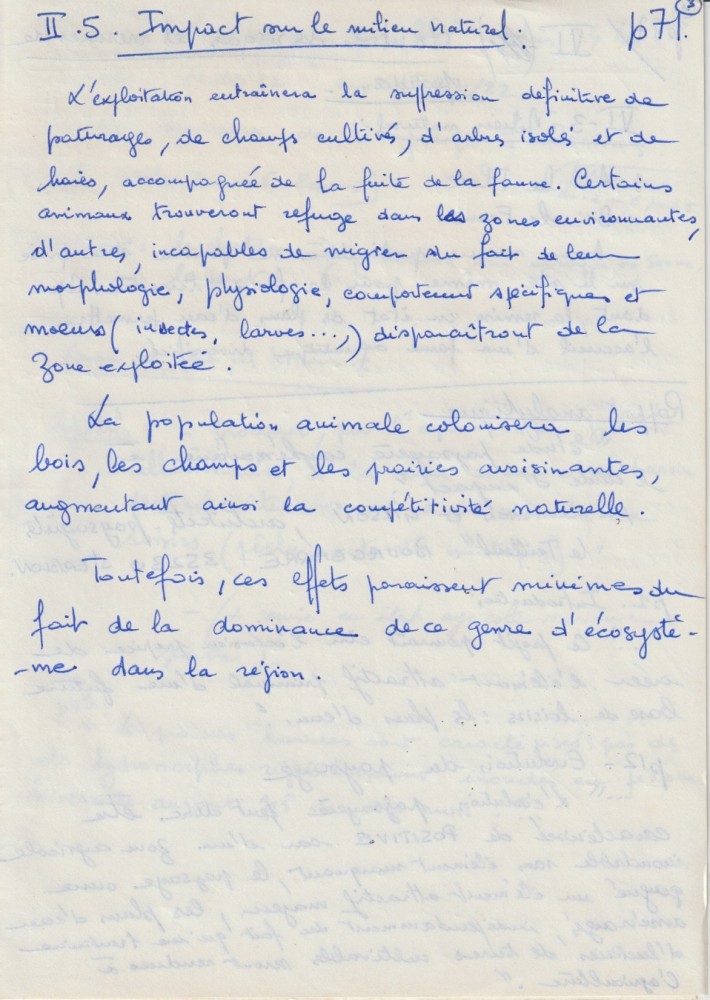 II.5. Impact sur le milieu naturel. p71. 3
L'exploitation entraînera la suppression définitive de
paturages, de champs cultivés, d'arbres isolés et de
haies, accompagnée de la fuite de la faune. Certains
animaux trouveront refuge dans les zones environnantes,
d'autres, incapables de migrer du fait de leur
morphologie, physiologie, comportement spécifiques et
moeurs (insectes, larves...,) disparaîtront de la
zone exploitée.
La population animale colonisera les
bois, les champs et les prairies avoisinantes,
augmentant ainsi la compétitivité naturelle.
Toutefois, ces effets paraissent minimes du
fait de la dominance de ce genre d'écosystè-
-me dans la région.